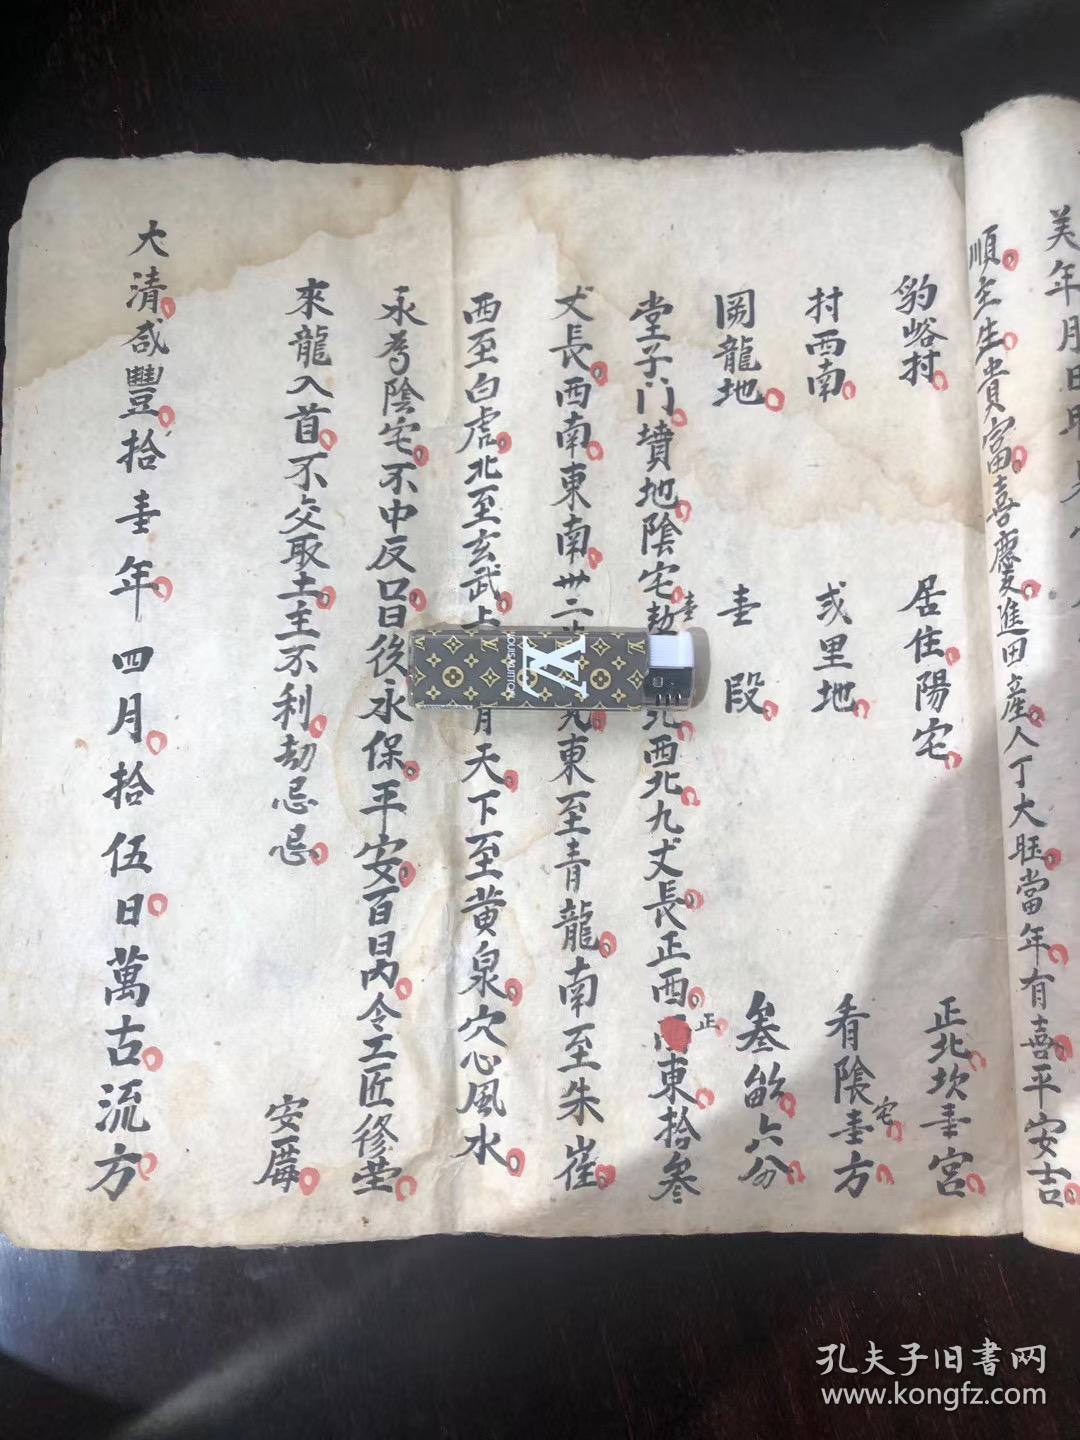 美年月日
順主生貴富喜慶進田產人丁大旺當年有喜平安吉
豹峪村 居住陽宅 正北坎壹宮
村西南 弍里地 看陰宅壹方
岡龍地 壹段 叁畝六分
堂子门墳地陰宅 壹 北西北九丈長正西正東拾叁
丈長西南東南卅二 九東至青龍南至朱崔
西至白虎北至玄武上 月天下至黄泉穴心風水
永為陰宅不中反口日後永保平安百日內令工匠修塋
來龍入首不交取土主不利劫忌忌 安厝
大清咸豐拾壹年四月拾伍日萬古流方
LOUIS VUITTON
孔夫子旧書网
www.kongfz.com